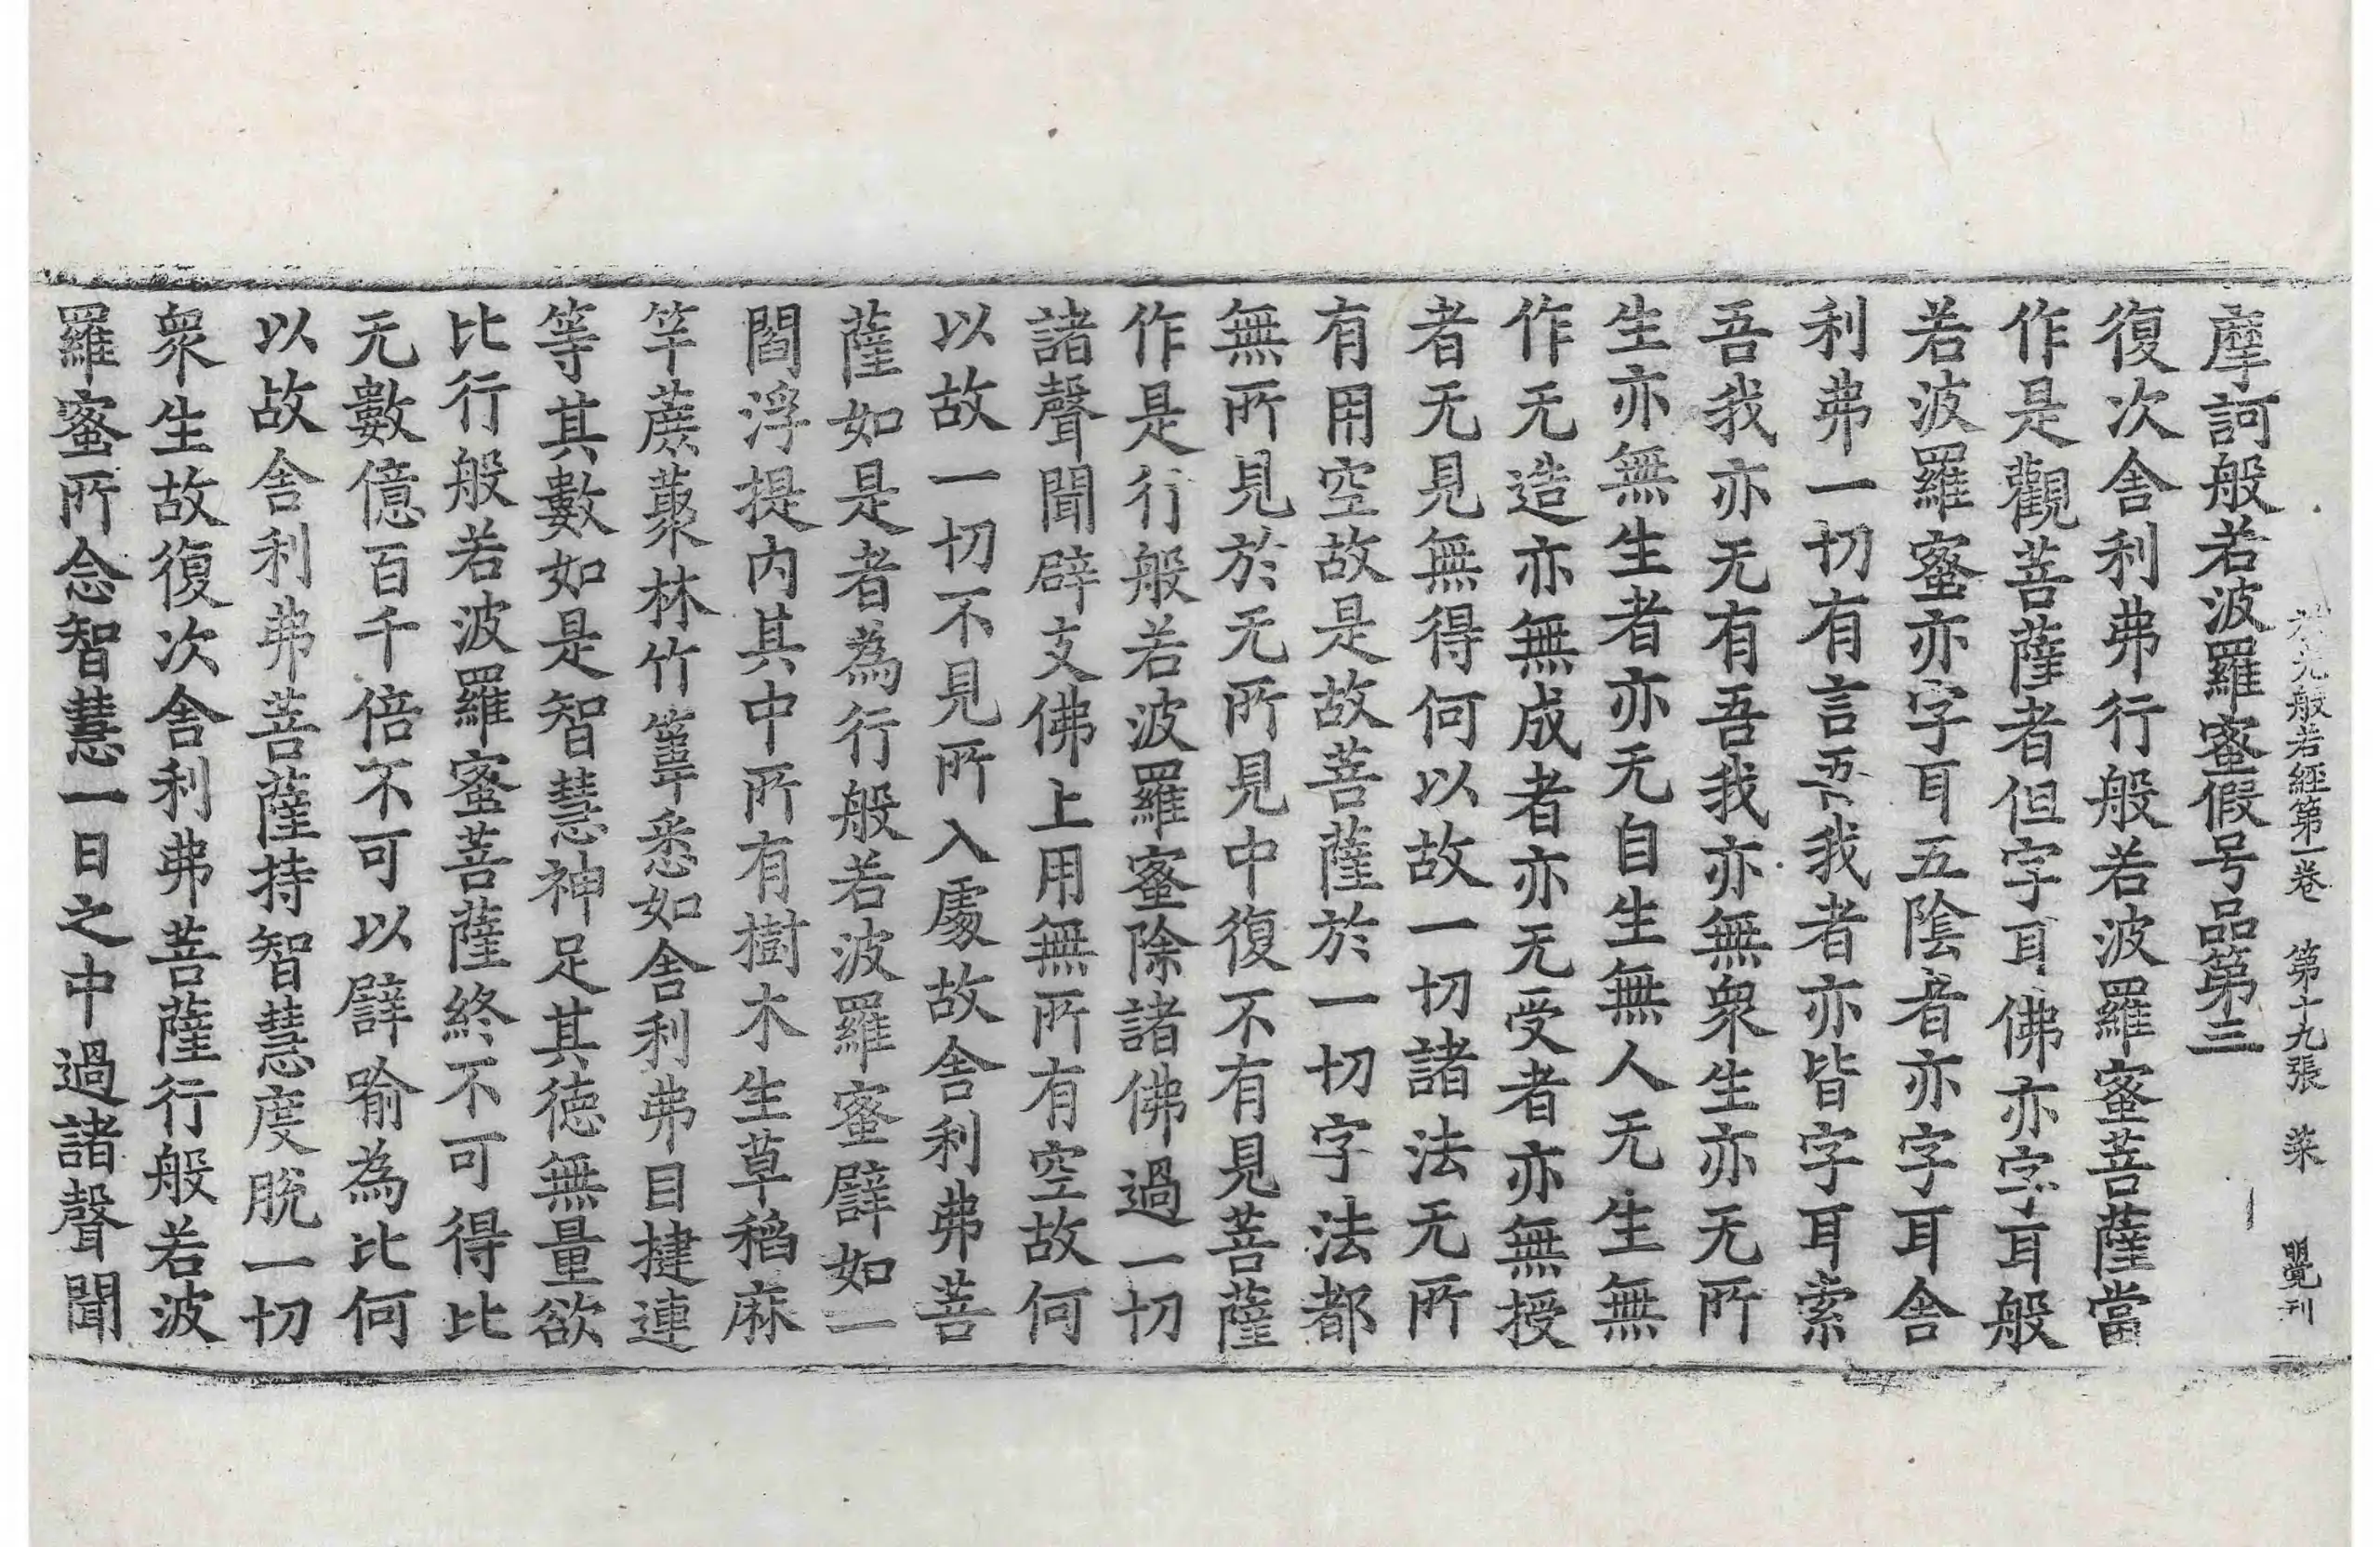 放光般若經第一卷　第十九張　菜　明覺刊
摩訶般若波羅蜜假号品第三
復次舍利弗行般若波羅蜜菩薩當
作是觀菩薩者但字耳佛亦字耳般
若波羅蜜亦字耳五陰者亦字耳舍
利弗一切有言吾我者亦皆字耳索
吾我亦无有吾我亦無衆生亦无所
生亦無生者亦无自生無人无生無
作无造亦無成者亦无受者亦無授
者无見無得何以故一切諸法无所
有用空故是故菩薩於一切字法都
無所見於无所見中復不有見菩薩
作是行般若波羅蜜除諸佛過一切
諸聲聞辟支佛上用無所有空故何
以故一切不見所入處故舍利弗菩
薩如是者為行般若波羅蜜譬如一
閻浮提内其中所有樹木生草稻麻
竿蔗藂林竹篿悉如舍利弗目揵連
等其數如是智慧神足其德無量欲
比行般若波羅蜜菩薩終不可得比
无數億百千倍不可以譬喻為比何
以故舍利弗菩薩持智慧度脫一切
衆生故復次舍利弗菩薩行般若波
羅蜜所念智慧一日之中過諸聲聞